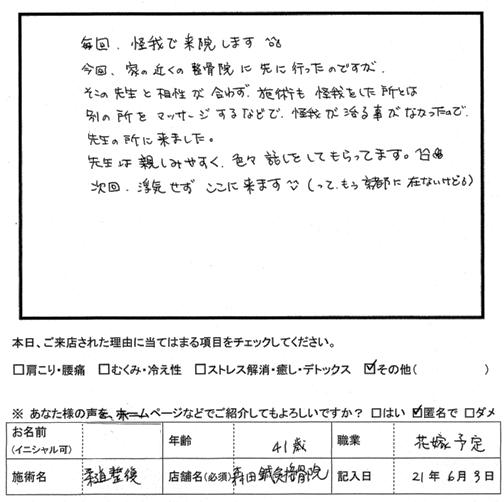 毎回、怪我で来院します
今回、家の近くの整骨院に先に行ったのですが、
そこの先生と相性が合わず、施術も怪我をした所とは
別の所をマッサージするなどで、怪我が治る事がなかったので、
先生の所に来ました。
先生は親しみやすく、色々話しをしてもらってます。
次回、浮気せずここに来ます(って、もう京都に在ないけども)
本日、ご来店された理由に当てはまる項目をチェックしてください。
□肩こり・腰痛 □むくみ・冷え性 □ストレス解消・癒し・デトックス ☑その他( )
※ あなた様の声を、ホームページなどでご紹介してもよろしいですか? □はい ☑匿名で □ダメ
お名前 (イニシャル可) 年齢 41歳 職業 花嫁予定
施術名 柔道整復 店舗名(必須) 森田鍼灸接骨院 記入日 21年6月3日